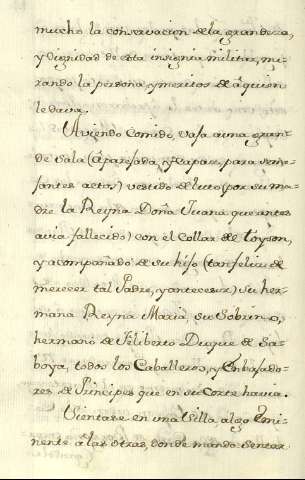 mucho la conservacion de la grandeza,
y dignidad de esta insignia militar, mi-
rando la persona, y meritos de á quien
le dava.
Aviendo Comido, vasa auna gran-
de Sala (áparesada, y capaz, para seme-
santes actos) vestido de luto (por su ma-
dre la Reyna Doña Juana que antes
avia fallecido) con el Collar del toyson,
y acompañado de su hijo (tan feliz de
merecer tal Padre, y antecesor) su her-
mana Reyna Maria, su Sobrino,
hermano de Filiberto Duque de Sa-
boya, todos los Cavalleros, y Enbasado-
res de Principes que en su Corte havia.
Sientase en una Silla, algo Emi-
nente á las otras, donde mandó sentar